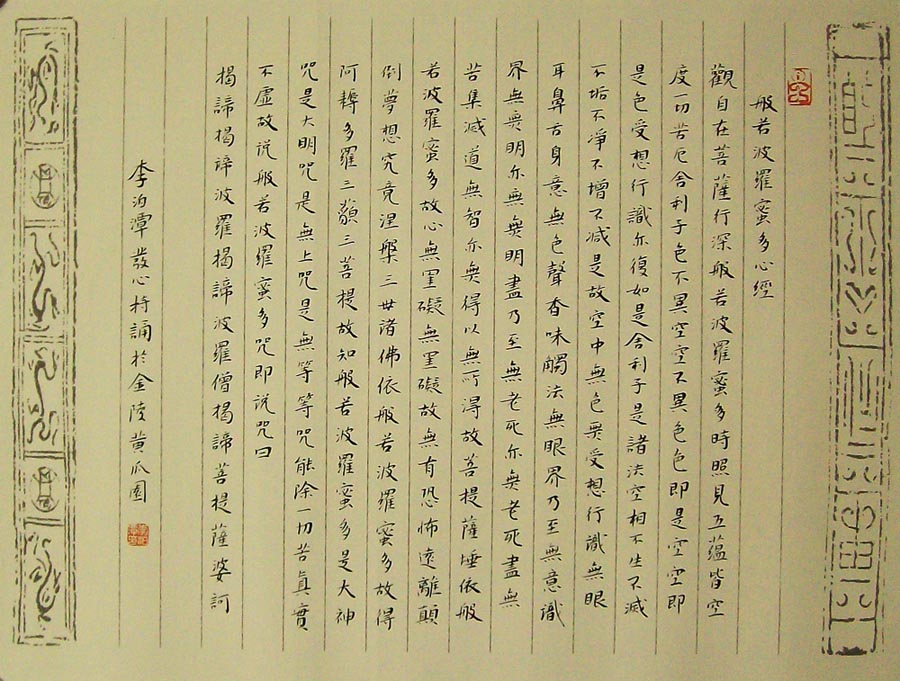 般若波羅蜜多心經
觀自在菩薩行深般若波羅蜜多時照見五蘊皆空
度一切苦厄舍利子色不異空空不異色色即是空空即
是色受想行識亦復如是舍利子是諸法空相不生不滅
不垢不淨不增不減是故空中無色無受想行識無眼
耳鼻舌身意無色聲香味觸法無眼界乃至無意識
界無無明亦無無明盡乃至無老死亦無老死盡無
苦集滅道無智亦無得以無所得故菩提薩埵依般
若波羅蜜多故心無罣礙無罣礙故無有恐怖遠離顛
倒夢想究竟涅槃三世諸佛依般若波羅蜜多故得
阿耨多羅三藐三菩提故知般若波羅蜜多是大神
咒是大明咒是無上咒是無等等咒能除一切苦真實
不虛故说般若波羅蜜多咒即说咒曰
揭諦揭諦波羅揭諦波羅僧揭諦菩提薩婆訶
李泊潭發心持誦於金陵黄瓜園